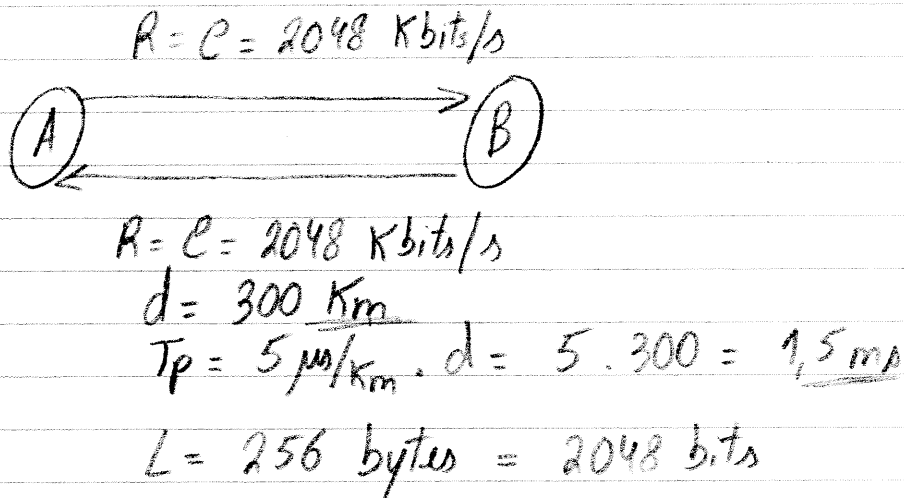 R = C = 2048 Kbits/s
A
B
R = C = 2048 Kbits/s
d = 300 Km
Tp = 5 μs/Km . d = 5 . 300 = 1,5 ms
L = 256 bytes = 2048 bits